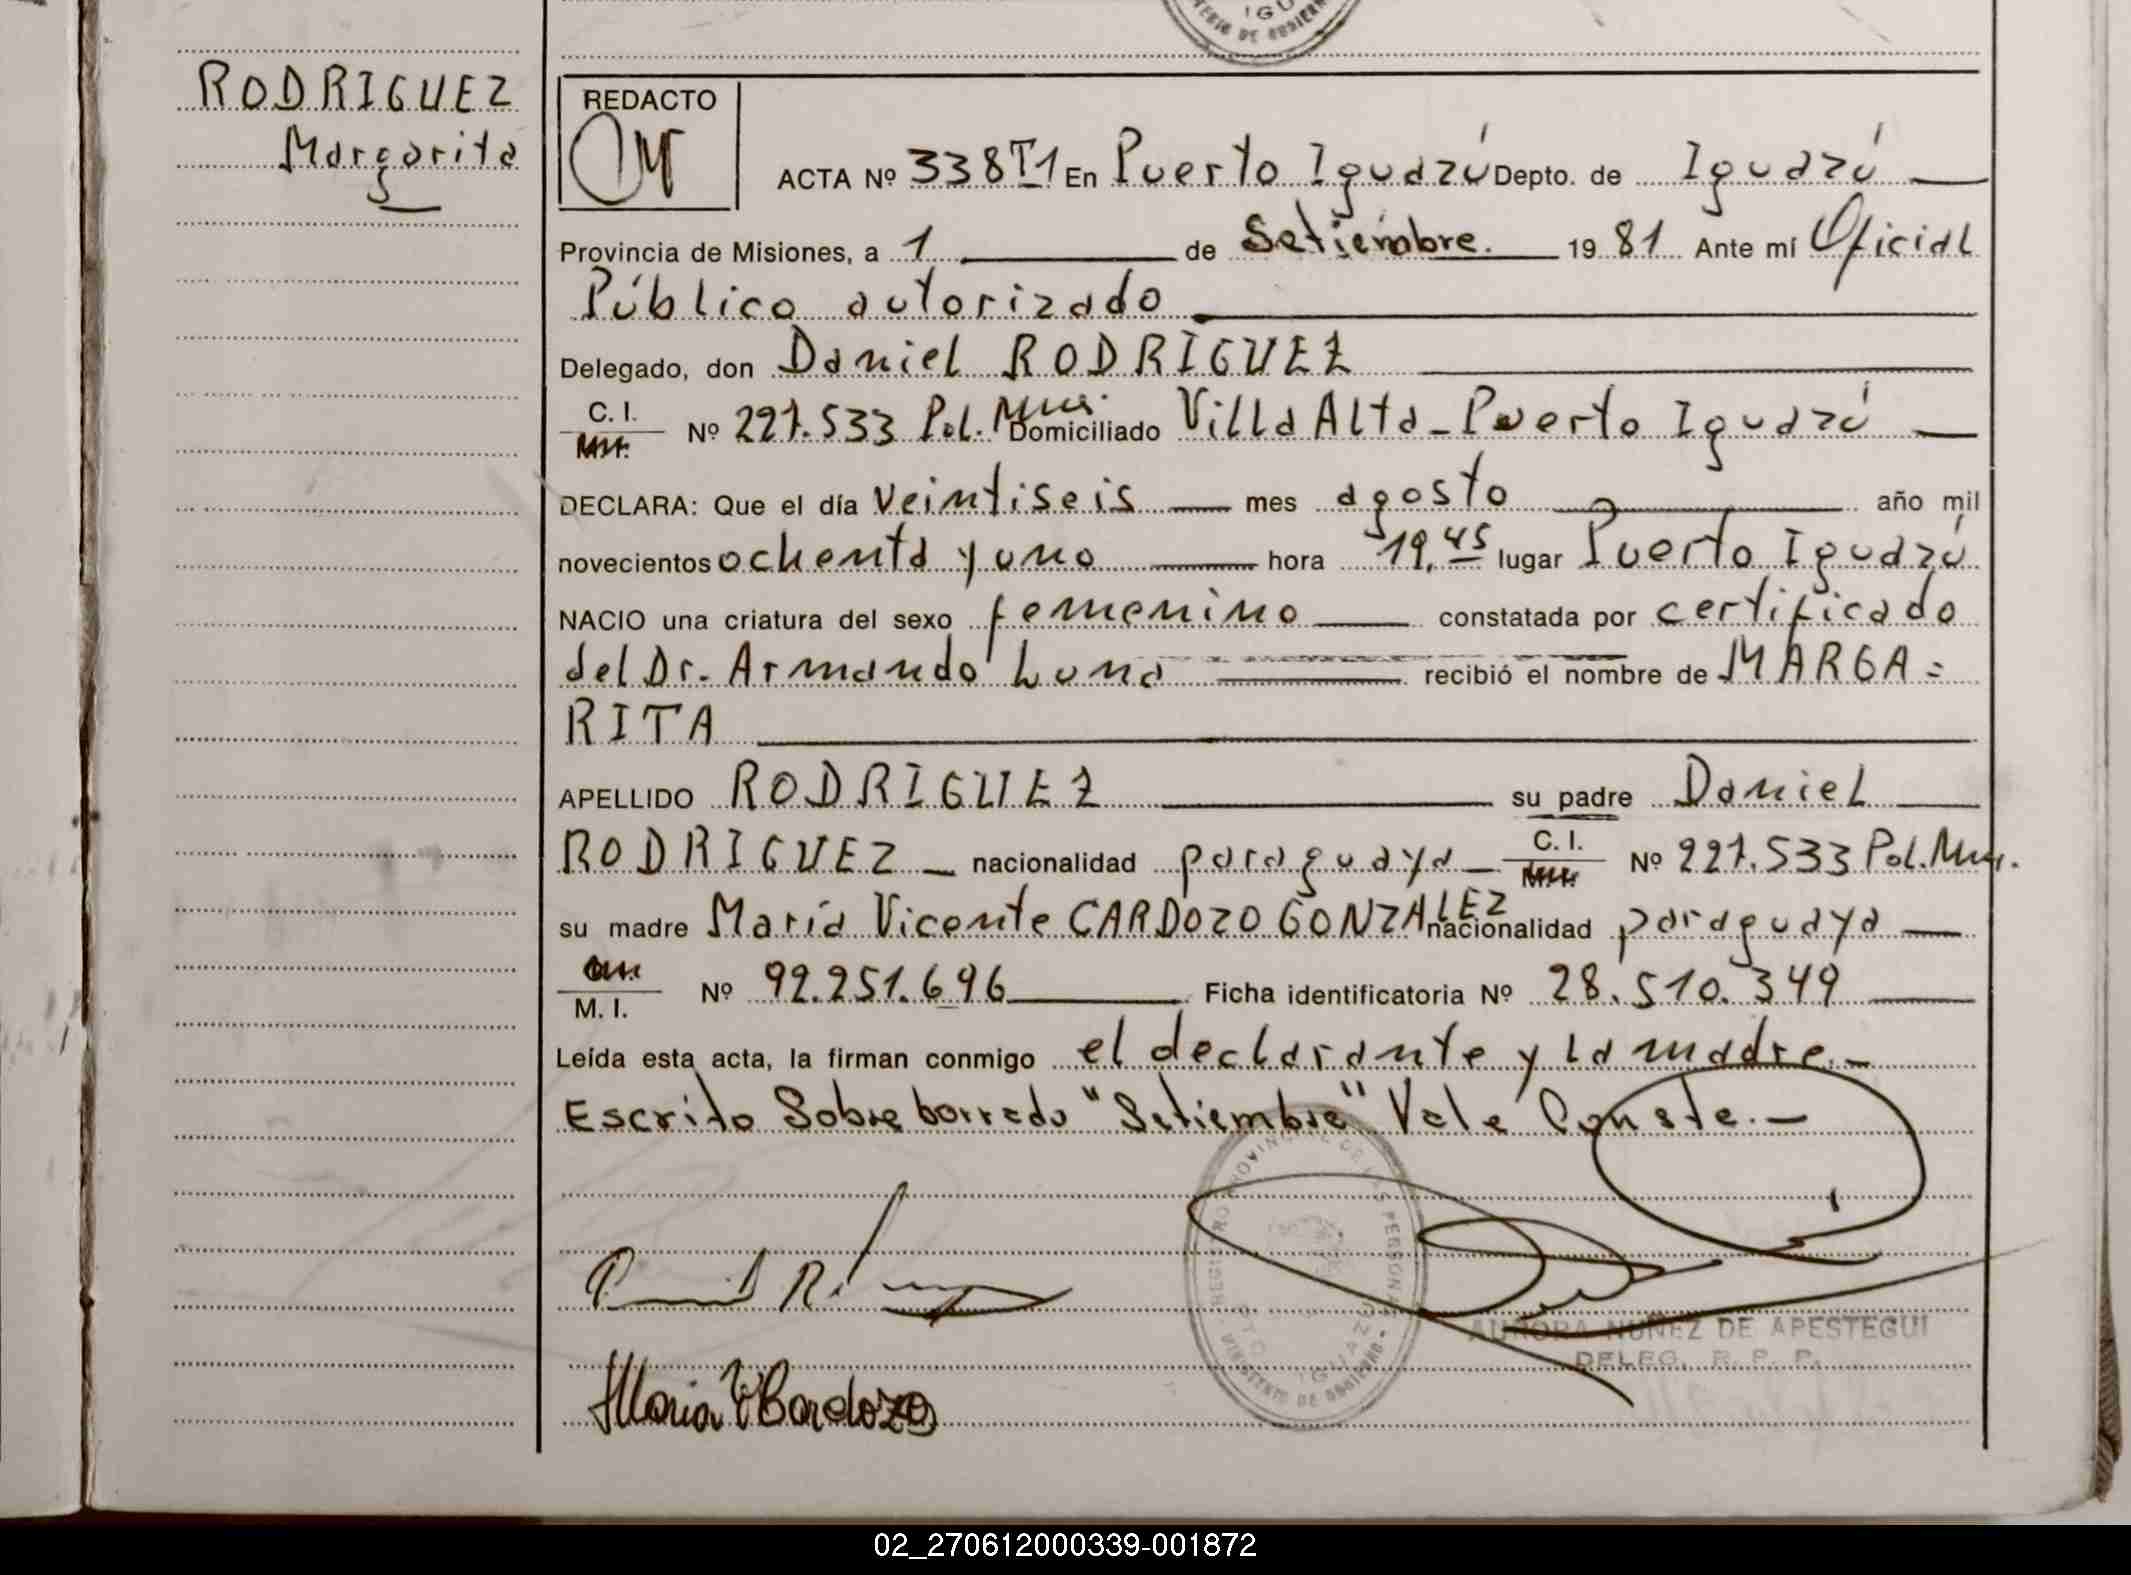 IGU
TERIO DE GOBIERN
RODRIGUEZ
Margarita
REDACTO
ACTA Nº 338 T1 En Puerto Iguazú Depto. de Iguazú
Provincia de Misiones, a 1 de Setiembre. 19 81 Ante mí Oficial
Público autorizado
Delegado, don Daniel RODRIGUEZ
C. I. Nº 227.533 Pol. Mis. Domiciliado Villa Alta - Puerto Iguazú
DECLARA: Que el día veintiseis mes agosto año mil
novecientos ochenta y uno hora 19,45 lugar Puerto Iguazú
NACIO una criatura del sexo femenino constatada por certificado
del Dr. Armando Luna recibió el nombre de MARGA=
RITA
APELLIDO RODRIGUEZ su padre Daniel
RODRIGUEZ nacionalidad paraguaya C. I. Nº 227.533 Pol. Mis.
su madre María Vicente CARDOZO GONZALEZ nacionalidad paraguaya
M. I. Nº 92.251.696 Ficha identificatoria Nº 28.510.349
Leída esta acta, la firman conmigo el declarante y la madre.-
Escrito Sobre borrado "Setiembre" Vale Conste.-
REGISTRO PROVINCIAL DE LAS PERSONAS
DTO IGUAZU
MINISTERIO DE GOBIERNO
AURORA NUÑEZ DE APESTEGUI
DELEG. R. P. P.
Maria V Cardozo
02_270612000339-001872